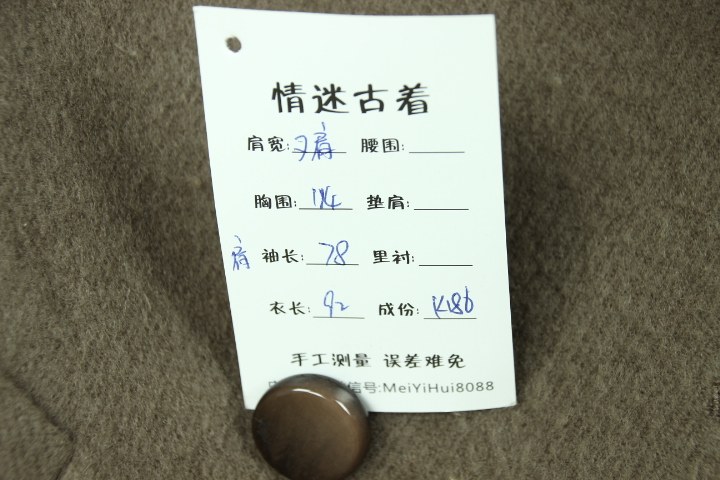 情迷古着
肩宽: 肩 腰围:
胸围: 114 垫肩:
肩 袖长: 78 里衬:
衣长: 92 成份:
手工测量 误差难免
信号:MeiYiHui8088